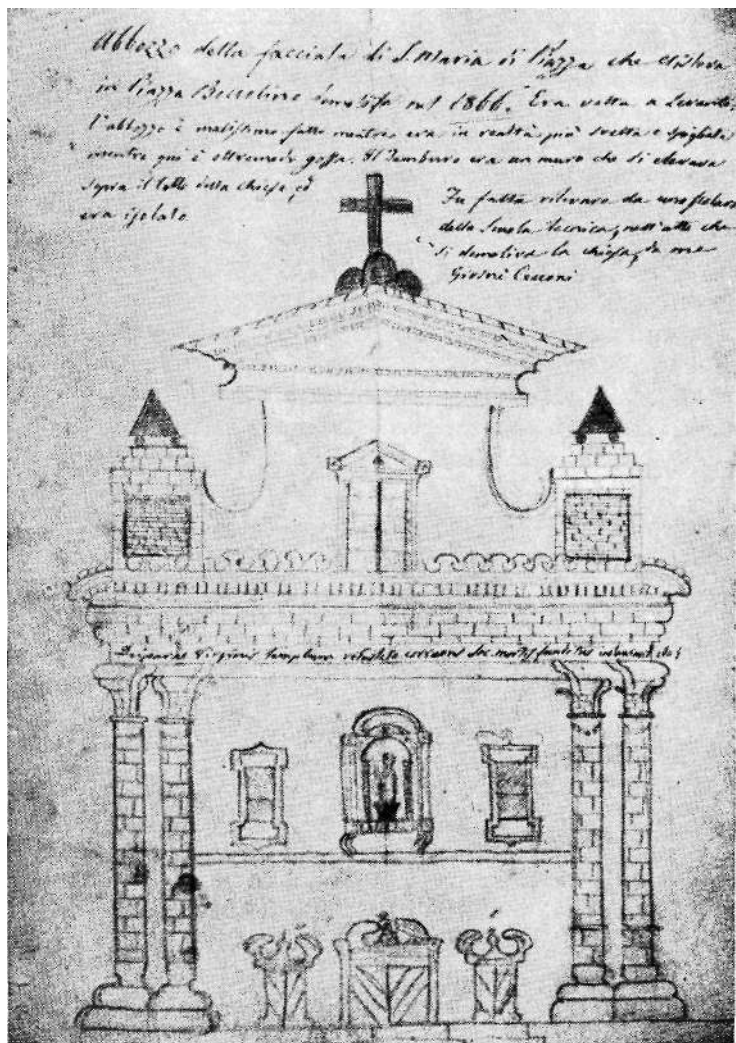 Abbozzo della facciata di S. Maria di Piazza che esisteva
in Piazza demolita nel 1866. Era volta a Levante,
l'abbozzo è malissimo fatto mentre era in realtà più svelta e spigliata
mentre qui è oltremodo goffa. Il Tamburo era un muro che si elevava
sopra il tetto della chiesa, ed
era isolato
Fu fatta rilevare da uno scolaro
della Scuola tecnica, nell'atto che
si demoliva la chiesa, da me
Cecconi
Deiparae Virginis templum vetustate corruens